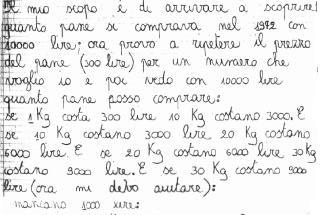 Il mio scopo è di arrivare a scoprire
quanto pane si comprava nel 1972 con
10000 lire; ora provo a ripetere il prezzo
del pane (300 lire) per un numero che
voglio io e poi vedo con 10000 lire
quanto pane posso comprare:
se 1 Kg costa 300 lire 10 Kg costano 3000. E
se 10 Kg costano 3000 lire 20 Kg costano
6000 lire. E se 20 Kg costano 6000 lire 30 Kg
costano 9000 lire. E se 30 Kg costano 9000
lire (ora mi debo aiutare):
mancano 1000 lire: